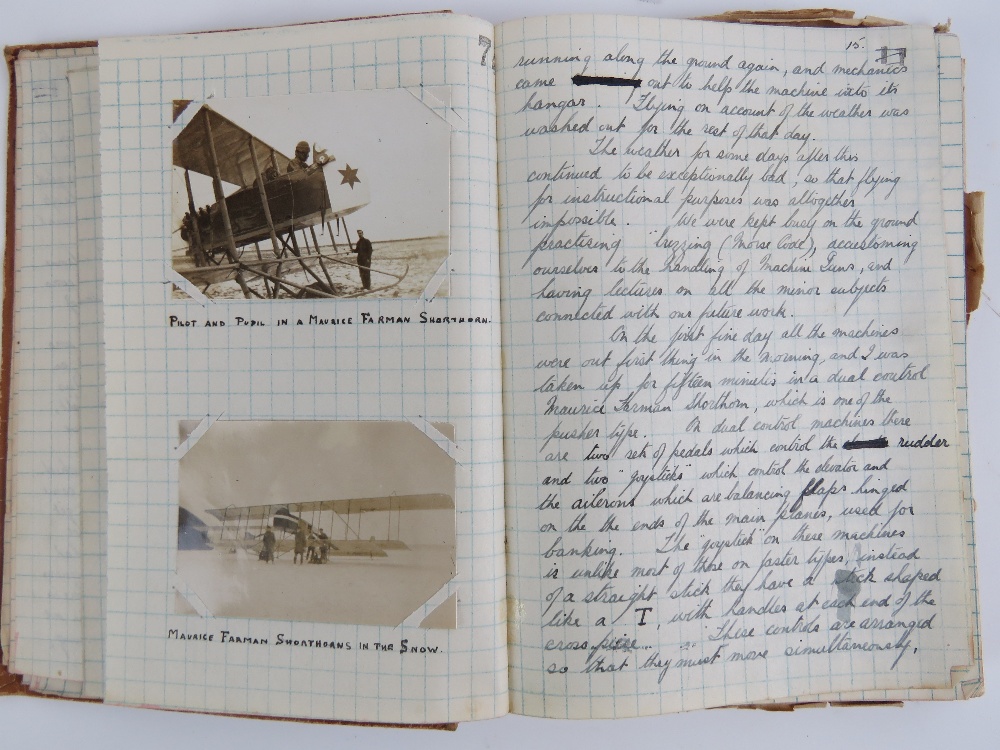 7
PILOT AND PUPIL IN A MAURICE FARMAN SHORTHORN.
MAURICE FARMAN SHORTHORNS IN THE SNOW.
15.
11
running along the ground again, and mechanics
came out to help the machine into its
hangar. Flying on account of the weather was
washed out for the rest of that day.
The weather for some days after this
continued to be exceptionally bad, so that flying
for instructional purposes was altogether
impossible. We were kept busy on the ground
practising "buzzing (Morse Code), accustoming
ourselves to the handling of Machine Guns, and
having lectures on all the minor subjects
connected with our future work.
On the first fine day all the machines
were out first thing in the morning, and I was
taken up for fifteen minutes in a dual control
Maurice Farman Shorthorn, which is one of the
pusher type. On dual control machines there
are two set of pedals which control the rudder
and two "joysticks" which control the elevator and
the ailerons which are balancing flaps hinged
on the the ends of the main planes, used for
banking. The "joystick" on these machines
is unlike most of those on faster types, instead
of a straight stick they have a stick shaped
like a T, with handles at each end of the
cross piece. These controls are arranged
so that they must move simultaneously,